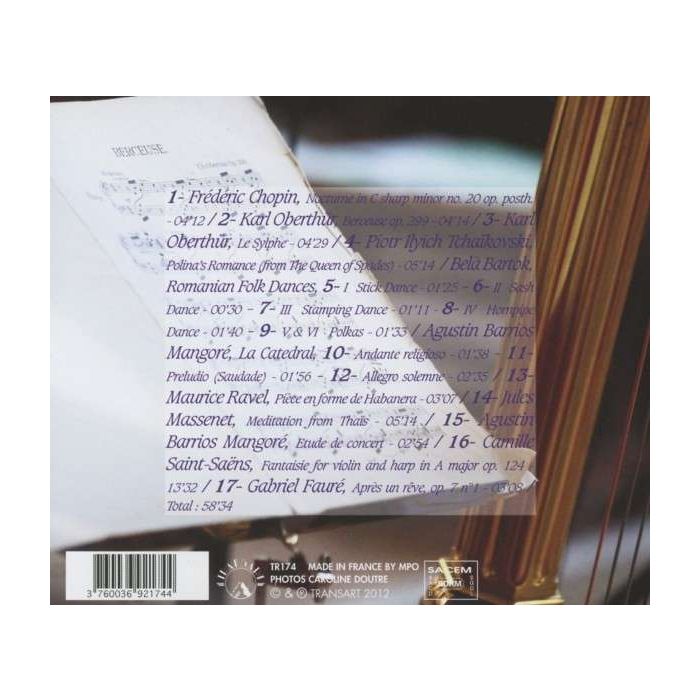 BERCEUSE.
1- Frédéric Chopin, Nocturne in C sharp minor no. 20 op. posth.
- 04'12 / 2- Karl Oberthür, Berceuse op. 299 - 04'14 / 3- Karl
Oberthür, Le Sylphe - 04'29 / 4- Piotr Ilyich Tchaïkovski,
Polina's Romance (from The Queen of Spades) - 05'14 / Béla Bartók,
Romanian Folk Dances, 5- I Stick Dance - 01'25 - 6- II Sash
Dance - 00'30 - 7- III Stamping Dance - 01'11 - 8- IV Hornpipe
Dance - 01'40 - 9- V, & VI - Polkas - 01'33 / Agustin Barrios
Mangoré, La Catedral, 10- Andante religioso - 01'38 - 11-
Preludio (Saudade) - 01'56 - 12- Allegro solemne - 02'35 / 13-
Maurice Ravel, Pièce en forme de Habanera - 03'07 / 14- Jules
Massenet, Meditation from Thaïs - 05'14 / 15- Agustin
Barrios Mangoré, Etude de concert - 02'54 / 16- Camille
Saint-Saëns, Fantaisie for violin and harp in A major op. 124 /
13'32 / 17- Gabriel Fauré, Après un rêve, op. 7 n°1 - 03'08 /
Total : 58'34
3 760036 921744
TR174 MADE IN FRANCE BY MPO
PHOTOS CAROLINE DOUTRE
© & ℗ TRANSART 2012
SACEM
SDRM